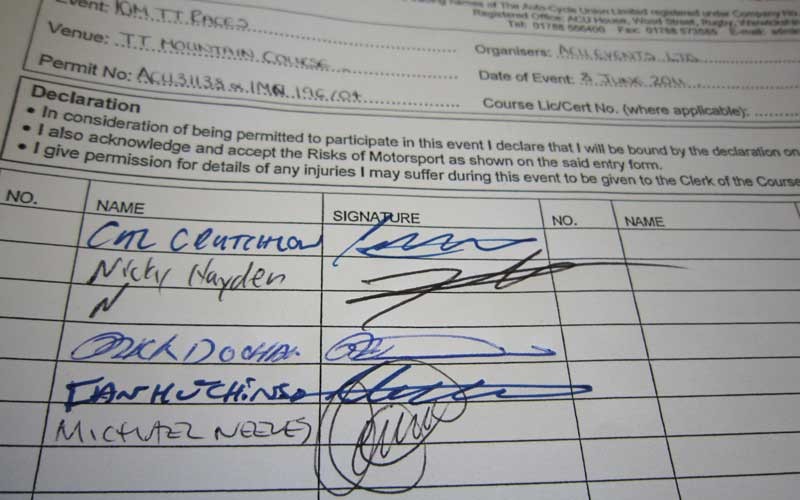 Event: IOM TT RACES
Venue: TT MOUNTAIN COURSE
Permit No: ACU31138 & IMN 196/04
Trading Names of The Auto-Cycle Union Limited registered under Company No.
Registered Office: ACU House, Wood Street, Rugby, Warwickshire
Tel: 01788 566400 Fax: 01788 573585 E-mail: admin
Organisers: ACU EVENTS LTD
Date of Event: 3 JUNE 2011
Course Lic/Cert No. (where applicable):
Declaration
• In consideration of being permitted to participate in this event I declare that I will be bound by the declaration on
• I also acknowledge and accept the Risks of Motorsport as shown on the said entry form.
• I give permission for details of any injuries I may suffer during this event to be given to the Clerk of the Course
NO. NAME SIGNATURE NO. NAME
CAL CRUTCHLOW
Nicky Hayden
N
MICK DOOHAN
IAN HUTCHINSON
MICHAEL NEEVES